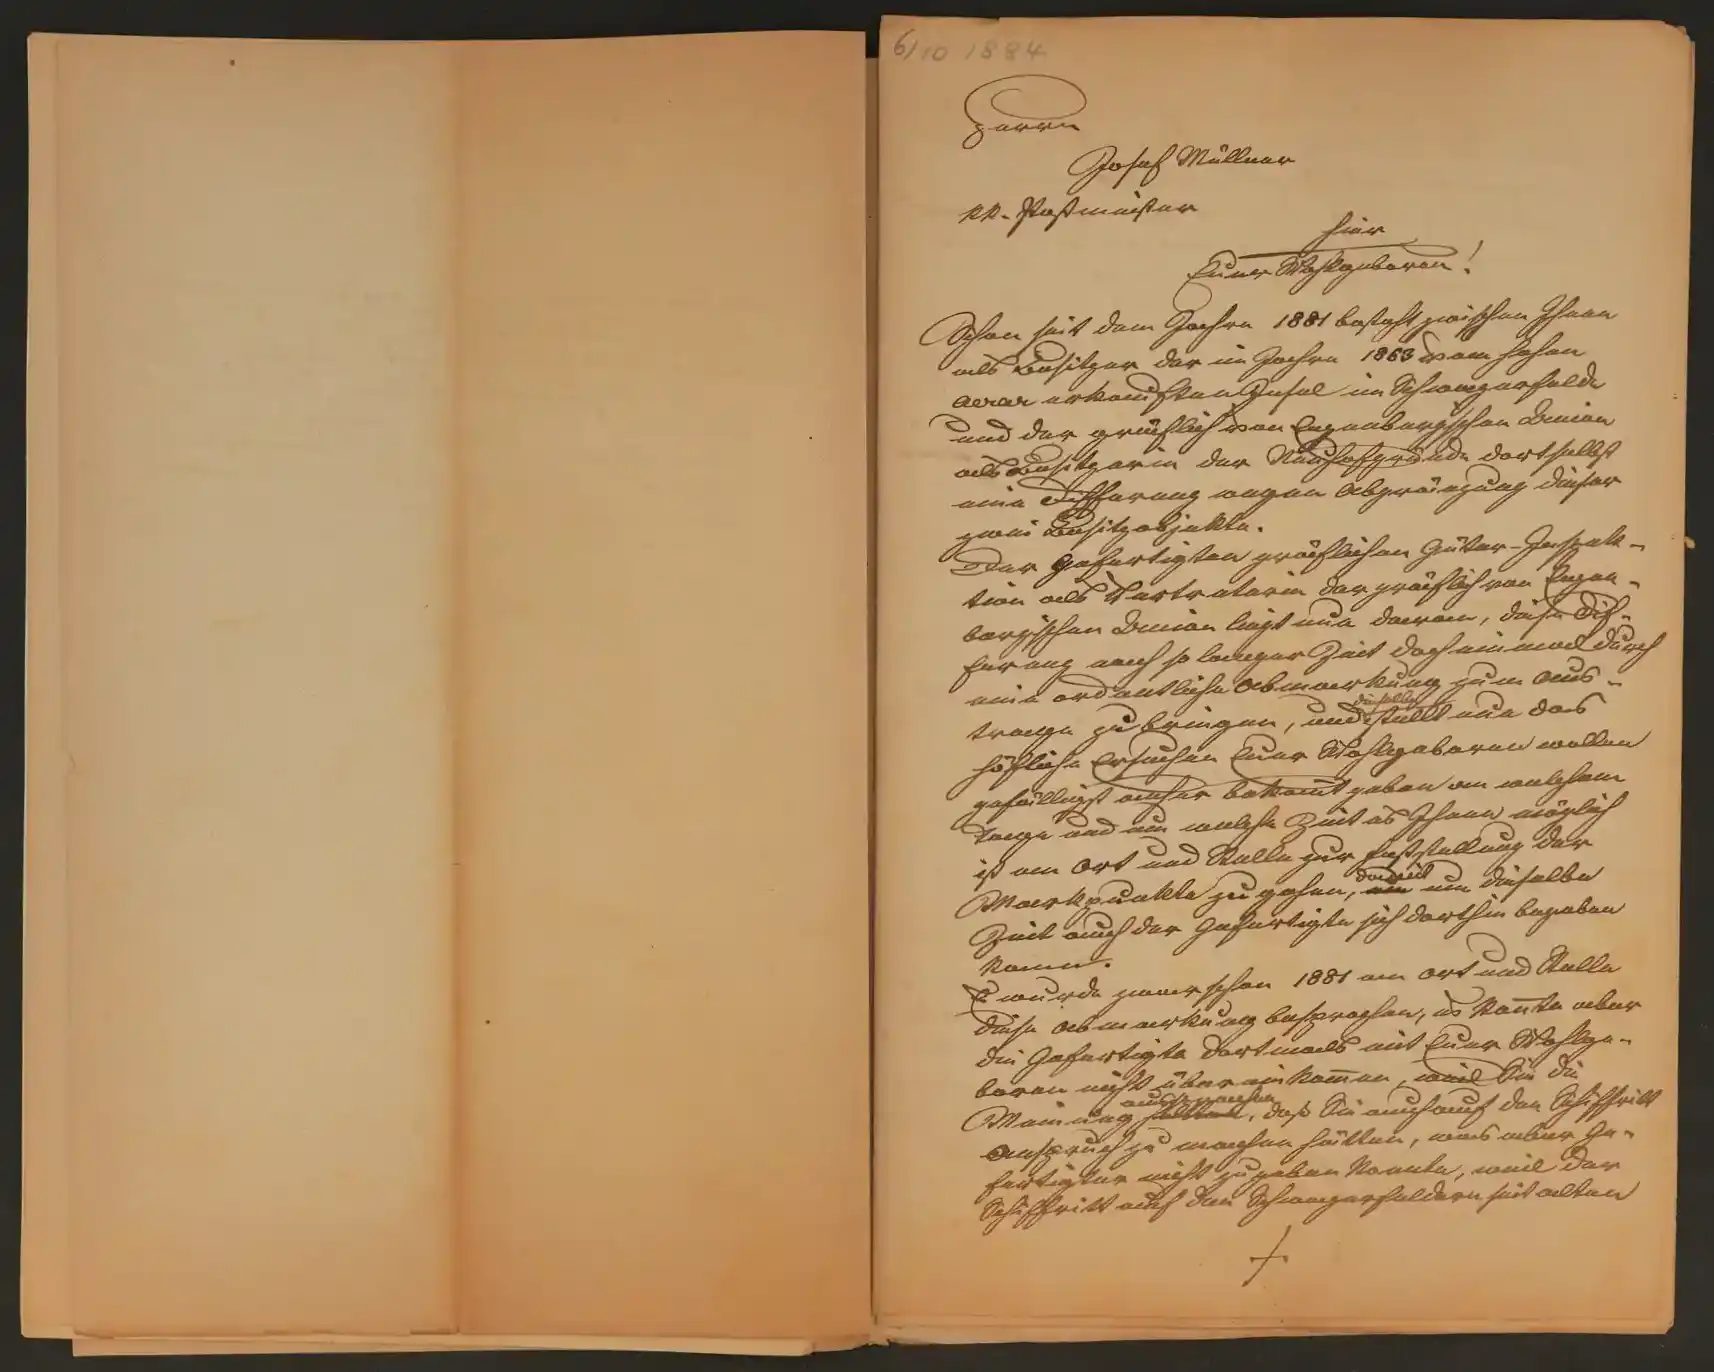 6/10 1884
Herrn
Josef Müllner
kk. Postmeister
hier
Euer Wohlgeboren!
Schon seit dem Jahre 1881 besteht zwischen Ihnen
als Besitzer der im Jahre 1863 vom hohen
Aerar erkauften Insel im Schwazerfelde
und der gräflich von Enzenbergischen Domäne
als Besitzerin der Neuhofgründe dortselbst
eine Differenz wegen Abgränzung dieser
zwei Besitzobjekte.
Der Gefertigten gräflichen Güter-Inspek-
tion als Vertreterin der gräflich von Enzen-
bergischen Domäne liegt nun daran, diese Dif-
ferenz nach so langer Zeit doch einmal durch
eine ordentliche Abmarkung zum Aus-
trage zu bringen, und dieselbe stellt nun das
höfliche Ersuchen Euer Wohlgeboren wollen
gefälligst anher bekannt geben an welchem
Tage und um welche Zeit es Ihnen möglich
ist an Ort und Stelle zur Feststellung der
Markpunkte zu gehen, damit um dieselbe
Zeit auch der Gefertigte sich dorthin begeben
kann.
Es wurde zwar schon 1881 an Ort und Stelle
diese Abmarkung besprochen, es konnte aber
die Gefertigte dortmals mit Euer Wohlge-
boren nicht übereinkommen, weil Sie die
Meinung aussprachen, daß Sie auch auf den Schiffritt
Anspruch zu machen hätten, was aber Ge-
fertigter nicht zugeben konnte, weil der
Schiffritt auf den Schwazerfeldern seit alten